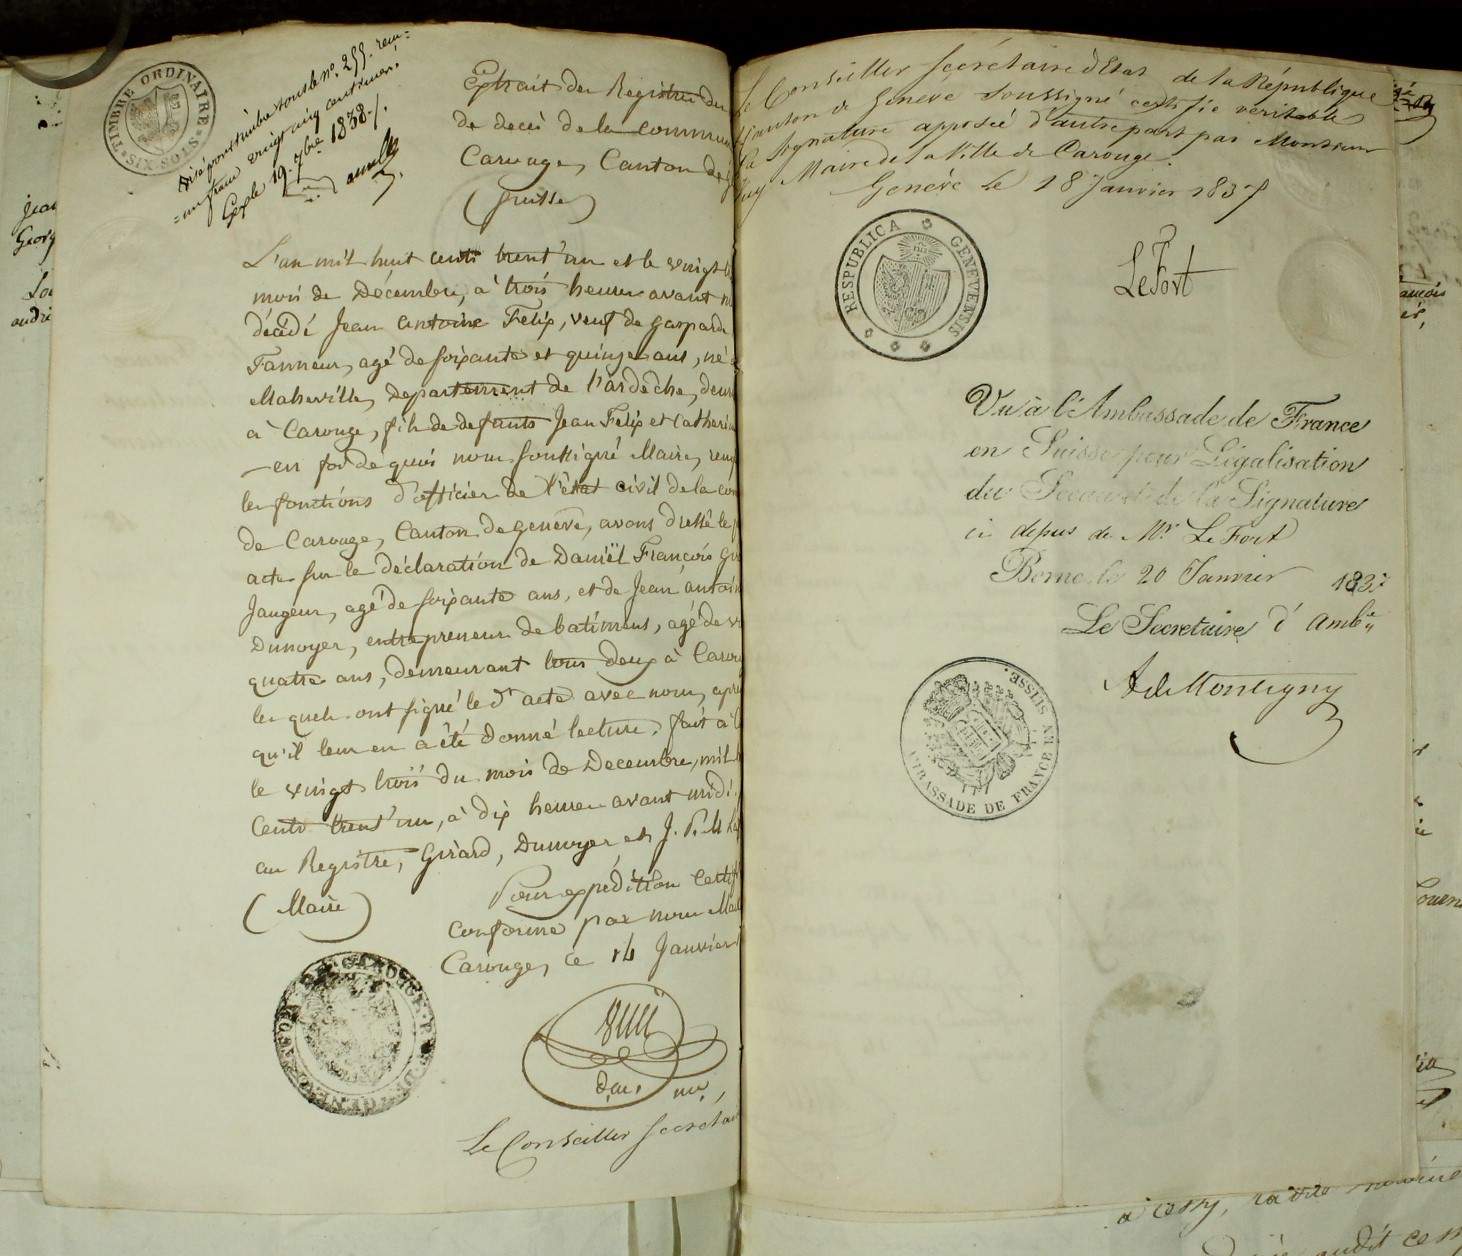 TIMBRE ORDINAIRE
SIX SOLS
Visé pour timbre sous le no. 255. reçu
un franc vingt cinq centimes.
Gex le 19. 7bre 1838.
Extrait des Registres des
de decès de la commune
Carouge, Canton de
(Suisse)
L'an mil huit cent trent'un et le vingt
mois de Décembre, à trois heures avant
décédé Jean Antoine Felix, veuf de Gasparde
Tanneur, agé de soixante et quinze ans, né
Maheville, departement de l'ardèche, dem
à Carouge, fils de defunts Jean Felix et Catherine
en foi de quoi nous soussigné Maire, remp
les fonctions d'officier de l'état civil de la com
de Carouge, Canton de genève, avons dressé le
acte sur la déclaration de Daniël François
Jaugeur, agé de soixante ans, et de Jean antoin
Dunoyer, entrepreneur de batimens, agé de
quatre ans, demeurant tous deux à Carou
les quels ont signé le dt acte avec nous, apr
qu'il leur en a été donné lecture. fait à
le vingt trois du mois de Decembre, mil
Cents trent'un, à dix heures avant midi.
au Registre, Girard, Dunoyer et J. P.
(Maire)
Pour expédition certif
conforme par nous Mai
Carouge, ce 14 Janvier
Le Conseiller Secrétai
Le Conseiller Secrétaire d'Etat de la République
Canton de Genève soussigné certifie véritable
la signature apposée d'autre part par Monsieur
Maire de la Ville de Carouge.
Genève le 18 Janvier 1837
RESPUBLICA GENEVENSIS
LeFort
Vu à l'Ambassade de France
en Suisse pour Légalisation
du Sceau et de la Signature
ci dessus de Mr. Le Fort
Berne le 20 Janvier 1837
Le Secretaire d'Ambe
A de Montigny
AMBASSADE DE FRANCE EN SUISSE.